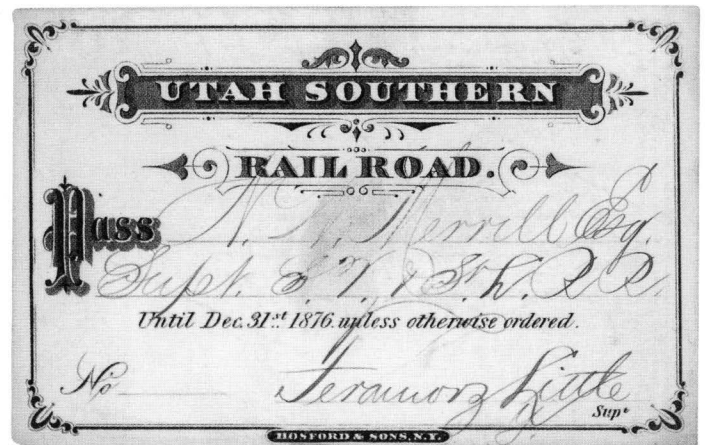 UTAH SOUTHERN
RAIL ROAD.
Pass N. Merrill Esq.
Supt. & St. L. R R.
Until Dec. 31st 1876. unless otherwise ordered.
No
Feramorz Little
Supt
HOSFORD & SONS, N.Y.